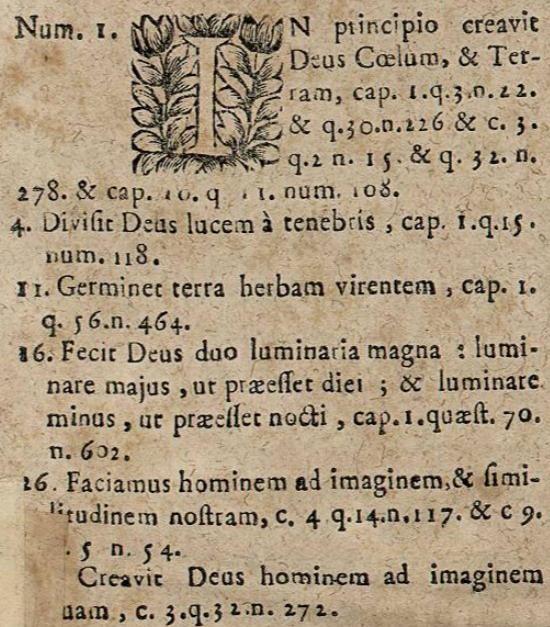 Num. 1. IN principio creavit
Deus Cœlum, & Ter-
ram, cap. 1.q.3.n.22.
& q.30.n.226 & c. 3.
q.2 n. 15. & q. 32. n.
278. & cap. 10. q 11. num. 108.
4. Divisit Deus lucem à tenebris, cap. 1.q.15.
num. 118.
11. Germinet terra herbam virentem, cap. 1.
q. 56.n. 464.
16. Fecit Deus duo luminaria magna : lumi-
nare majus, ut præesset diei ; & luminare
minus, ut præesset nocti, cap.1.quæst. 70.
n. 602.
26. Faciamus hominem ad imaginem,& simi-
litudinem nostram, c. 4 q.14.n.117. & c 9.
. 5 n. 54.
Creavit Deus hominem ad imaginem
uam, c. 3.q.32.n. 272.